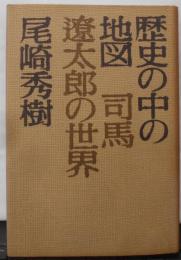 歴史の中の
地図 司馬
遼太郎の世界
尾崎秀樹